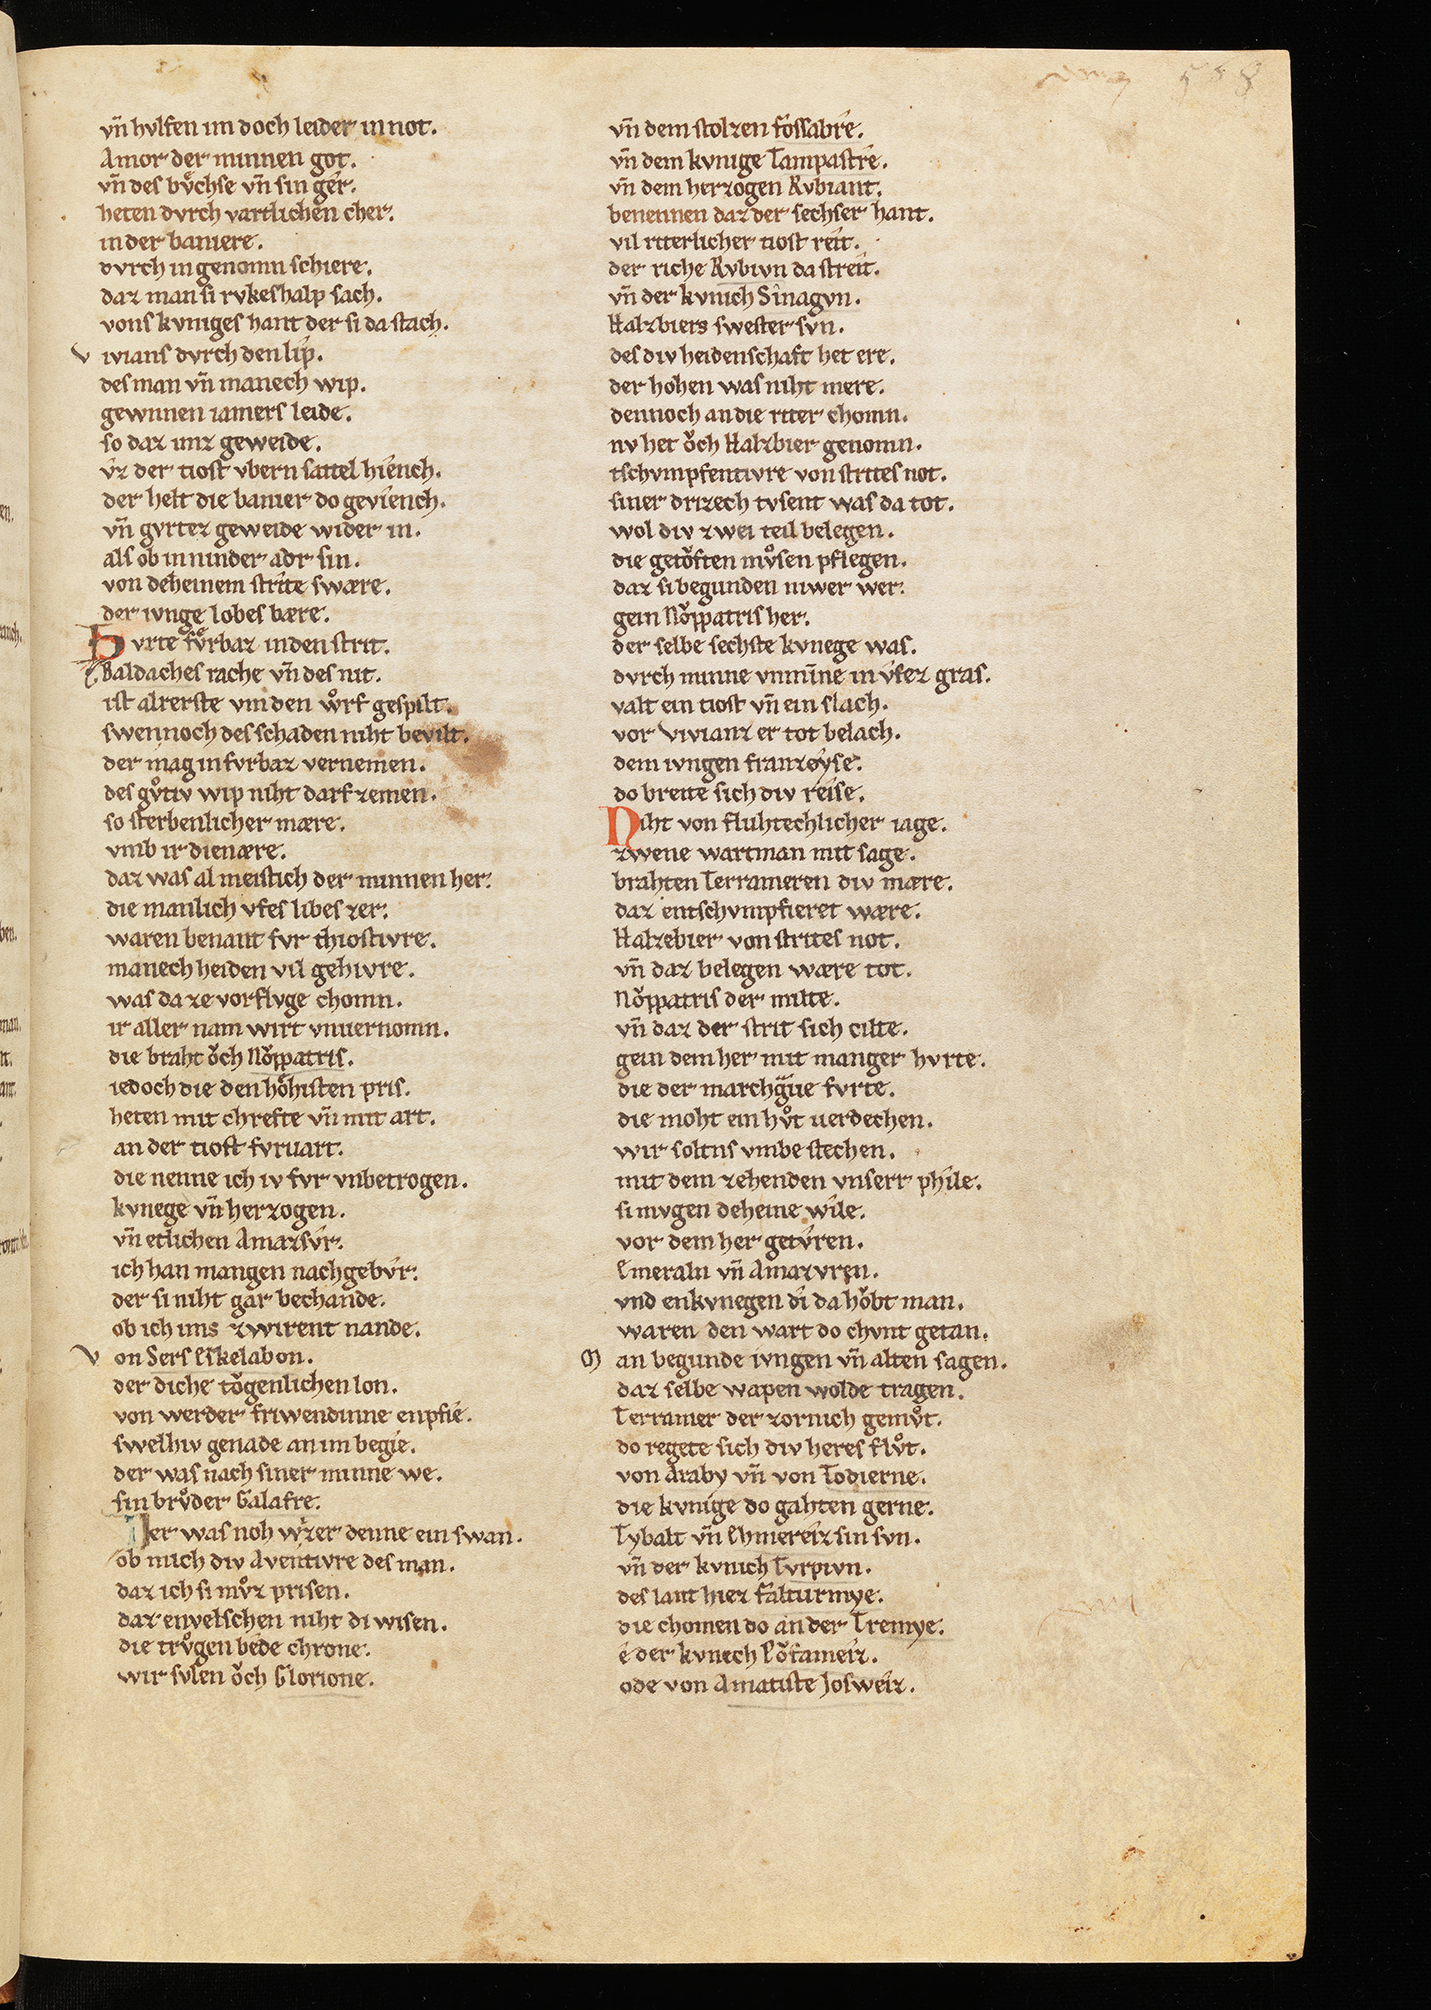 vn̄ hvlfen im doch leider in not.
Amor der minnen got.
vn̄ des bvͤchse vn̄ sin ger.
heten dvrch vartlichen cher.
in der baniere.
dvrch in genomn schiere.
daz man si rvkeshalp sach.
vons kvniges hant der si da stach.
Vivians dvrch den lip.
des man vn̄ manech wip.
gewnnen iamers leide.
so daz imz geweide.
vz der tiost vbern sattel hiench.
der helt die banier do geviench.
vn̄ gvrtez geweide wider in.
als ob in ninder adr sin.
von deheinem strite swære.
der ivnge lobes bære.
Hvrte fvͤrbaz in den strit.
Baldaches rache vn̄ des nit.
ist alrerste vm den wͦrf gespilt.
swen noch des schaden niht bevilt.
der mag in fvrbaz vernemen.
des gvͤtiv wip niht darf zemen.
so sterbenlicher mære.
vmb ir dienære.
daz was al meistich der minnen her.
die manlich vfes libes zer.
waren benant fvr thiostivre.
manech heiden vil gehivre.
was da ze vorflvge chomn.
ir aller nam wirt vnuernomn.
die braht oͮch Noͮppatris.
iedoch die den hoͤhisten pris.
heten mit chrefte vn̄ mit art.
an der tiost fvruart.
die nenne ich iv fvr vnbetrogen.
kvnege vn̄ herzogen.
vn̄ etlichen Amazsvr.
ich han mangen nachgebvr.
der si niht gar bechande.
ob ich ims zwirent nande.
Von Sers Eskelabon.
der diche toͮgenlichen lon.
von werder friwendinne enpfie.
swelhiv genade an im begie.
der was nach siner minne we.
sin brvͦder Galafre.
Der was noh wizer denne ein swan.
ob mich div Aventivre des man.
daz ich si mvͦz prisen.
daz envelschen niht di wisen.
die trvͦgen bede chrone.
wir svlen oͮch Glorione.
vn̄ dem stolzen fossabre.
vn̄ dem kvnige Tampastre.
vn̄ dem herzogen Rvbiant.
benennen daz der sechser hant.
vil riterlicher tiost reit.
der riche Rvbivn da streit.
vn̄ der kvnich Sinagvn.
Halzbiers swester svn.
des div heidenschaft het ere.
der hohen was niht mere.
dennoch an die riter chomn.
nv het oͮch Halzbier genomn.
tschvmpfentivre von strites not.
siner drizech tvsent was da tot.
wol div zwei teil belegen.
die getoͮften mvͦsen pflegen.
daz si begunden niwer wer.
gein Noͮppatris her.
der selbe sechste kvnege was.
dvrch minne vnmīne in vfez gras.
valt ein tiost vn̄ ein slach.
vor Vivianz er tot belach.
dem ivngen franzoyse.
do breite sich div reise.
Niht von fluhtechlicher iage.
zwene wartman mit sage.
brahten Terrameren div mære.
daz entschvmpfieret wære.
Halzebier von strites not.
vn̄ daz belegen wære tot.
Noͮppatris der milte.
vn̄ daz der strit sich cilte.
gein dem her mit manger hvrte.
die der marchgͣue fvrte.
die moht ein hvͦt uerdechen.
wir soltns vmbe stechen.
mit dem zehenden vnserr phile.
si mvgen deheine wile.
vor dem her getvren.
Emeraln vn̄ Amazvren.
vnd enkvnegen di da hoͮbt man.
waren den wart do chvnt getan.
Man begunde ivngen vn̄ alten sagen.
daz selbe wapen wolde tragen.
Terramer der zornich gemvͦt.
do regete sich div heres flvͦt.
von Araby vn̄ von Todierne.
die kvnige do gahten gerne.
Tybalt vn̄ Ehmereiz sin svn.
vn̄ der kvnich Tvrpivn.
des lant hiez falturmye.
die chomen do an der Tremye.
e der kvnech Poͮfameiz.
ode von Amatiste Josweiz.